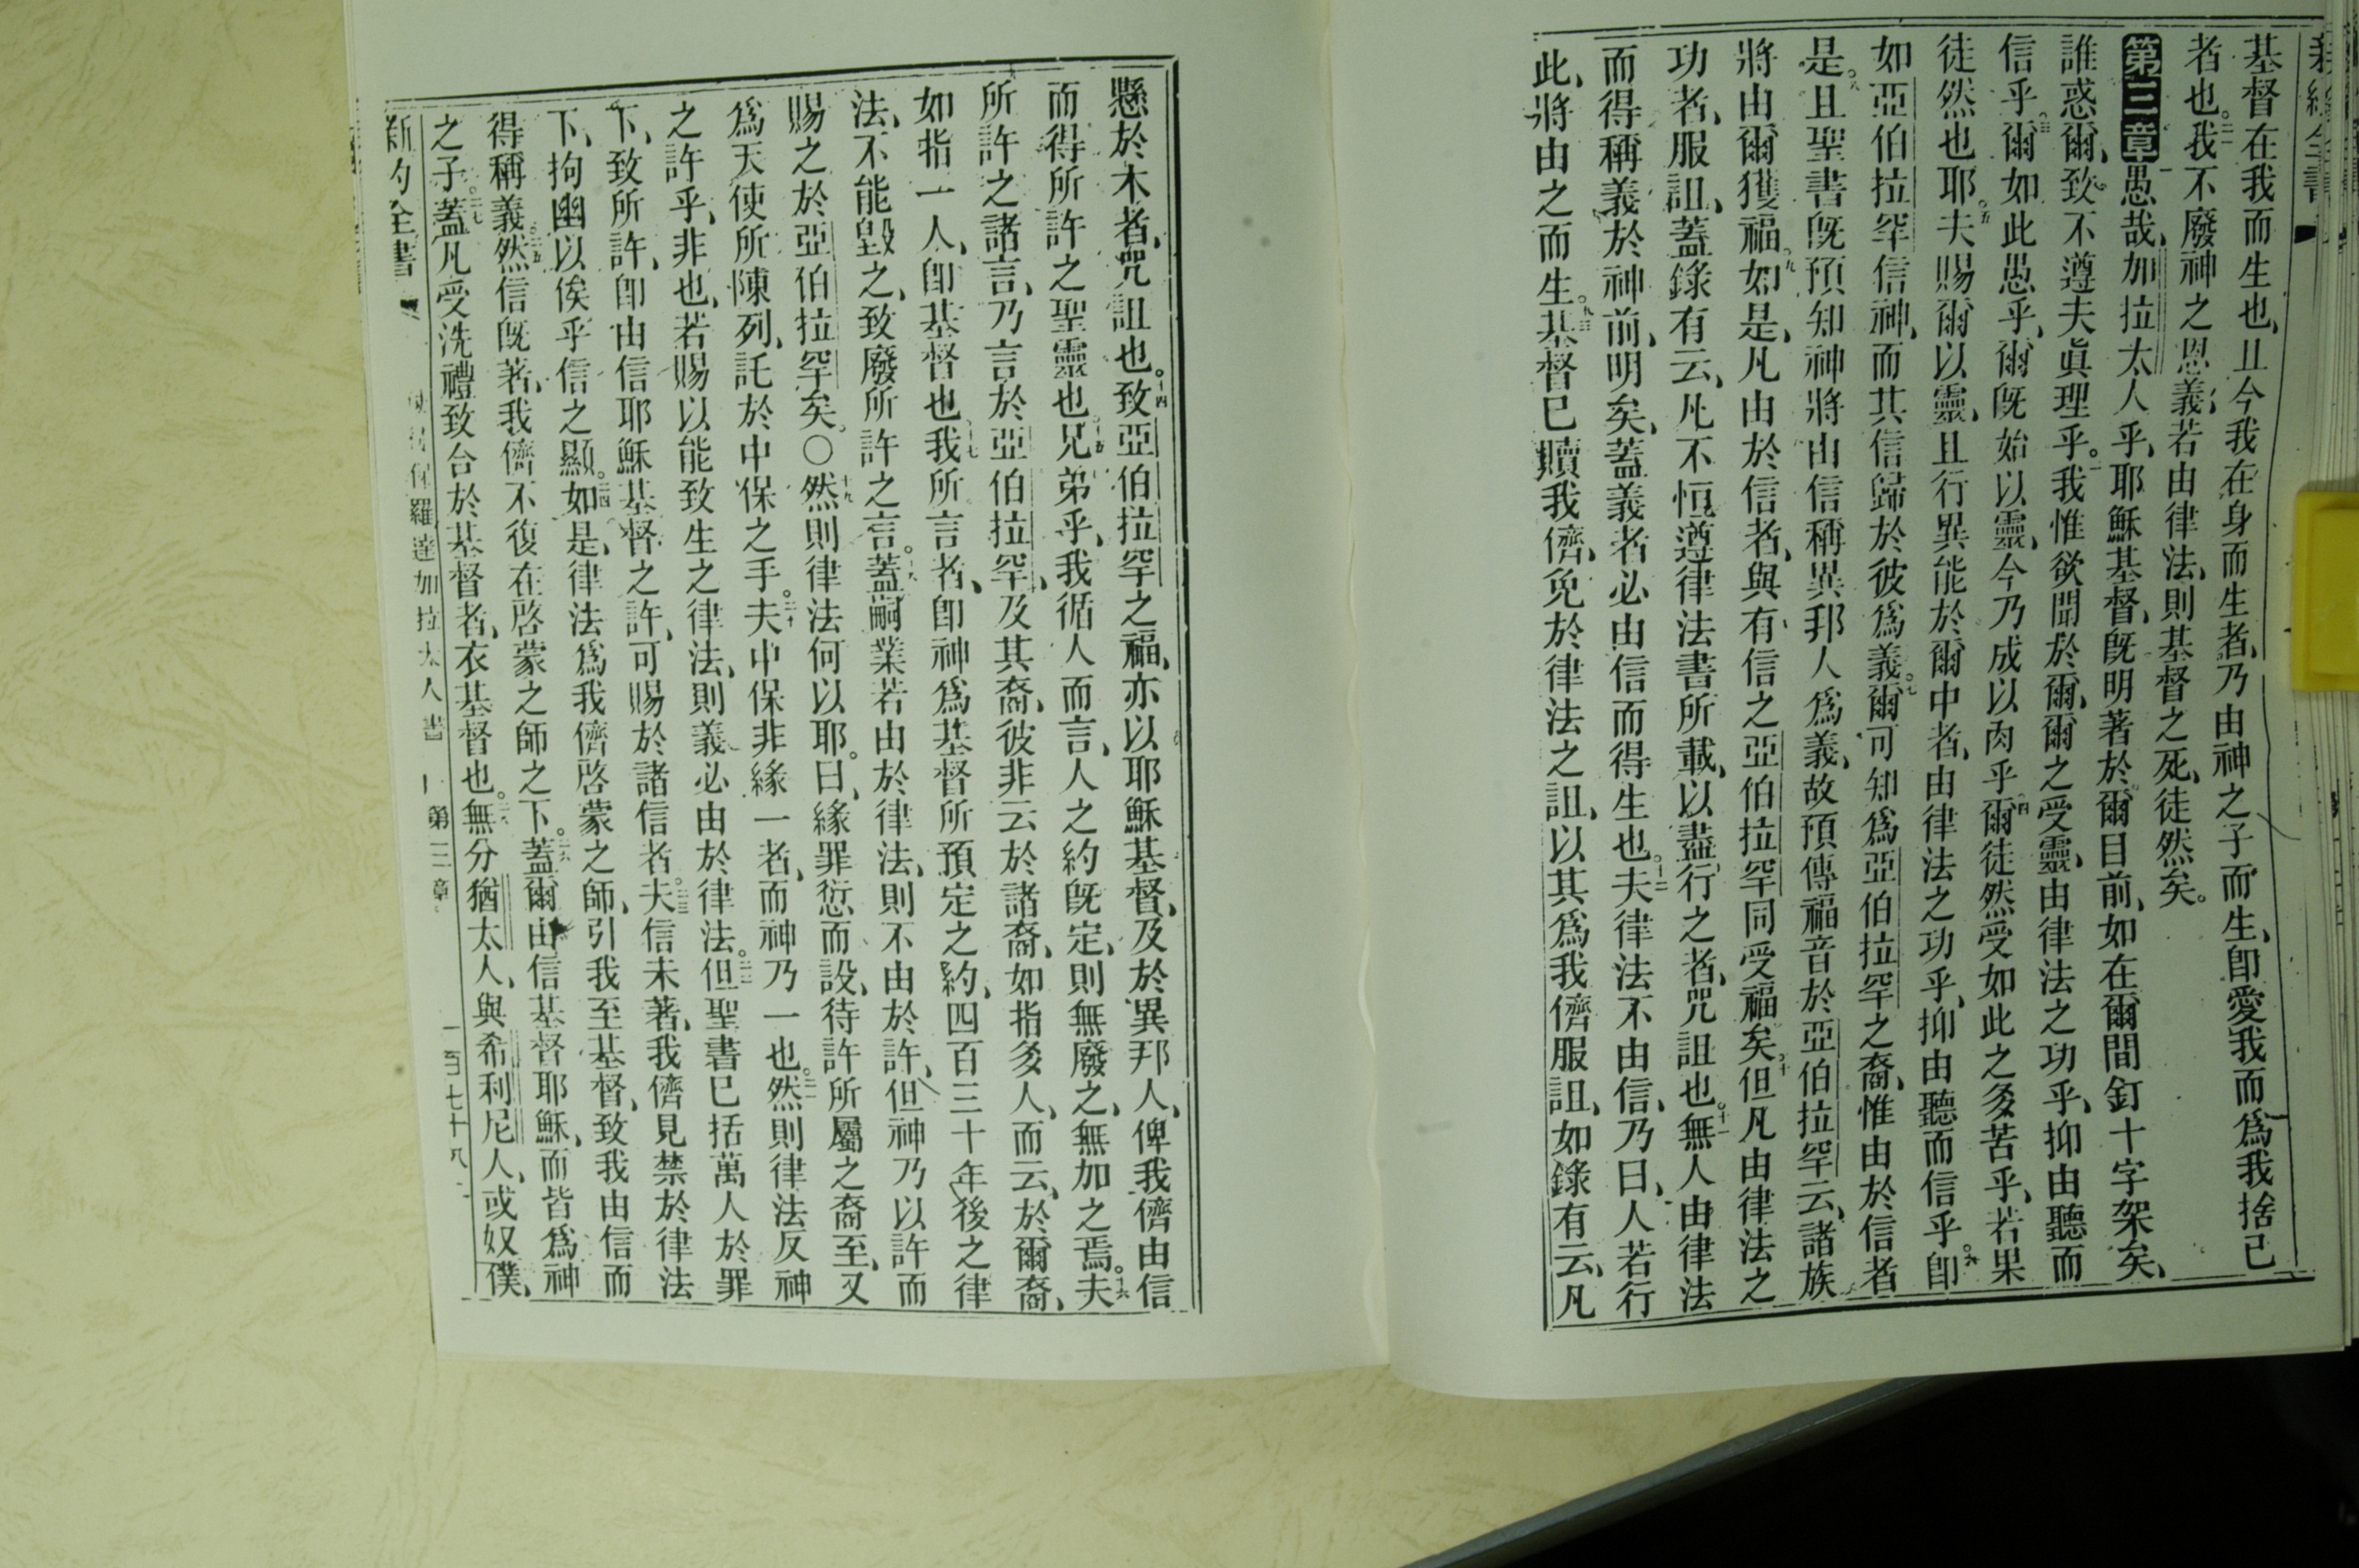 基督在我而生也、且今我在身而生者、乃由神之子而生、卽愛我而爲我捨己
者也。二一我不廢神之恩義、若由律法、則基督之死、徒然矣。
第三章一愚哉、加拉太人乎、耶穌基督、旣明著於爾目前、如在爾間釘十字架矣、
誰惑爾、致不遵夫眞理乎。二我惟欲聞於爾、爾之受靈、由律法之功乎、抑由聽而
信乎。三爾如此愚乎、爾旣始以靈、今乃成以肉乎。四爾徒然受如此之多苦乎、若果
徒然也耶。五夫賜爾以靈、且行異能於爾中者、由律法之功乎、抑由聽而信乎。六卽
如亞伯拉罕信神、而其信歸於彼爲義。七爾可知爲亞伯拉罕之裔、惟由於信者
是。八且聖書旣預知神將由信稱異邦人爲義、故預傳福音於亞伯拉罕云、諸族
將由爾獲福。九如是、凡由於信者、與有信之亞伯拉罕同受福矣。十但凡由律法之
功者、服詛、蓋錄有云、凡不恒遵律法書所載、以盡行之者、咒詛也。十一無人由律法
而得稱義於神前、明矣、蓋義者必由信而得生也。十二夫律法不由信、乃曰、人若行
此、將由之而生。十三基督已贖我儕、免於律法之詛、以其爲我儕服詛、如錄有云、凡
懸於木者、咒詛也。十四致亞伯拉罕之福、亦以耶穌基督、及於異邦人、俾我儕由信
而得所許之聖靈也。十五兄弟乎、我循人而言、人之約旣定、則無廢之、無加之焉。十六夫
所許之諸言、乃言於亞伯拉罕、及其裔、彼非云於諸裔、如指多人、而云、於爾裔、
如指一人、卽基督也。十七我所言者、卽神爲基督所預定之約、四百三十年後之律
法、不能毀之、致廢所許之言。十八蓋嗣業若由於律法、則不由於許、但神乃以許而
賜之於亞伯拉罕矣。〇十九然則律法何以耶。曰、緣罪愆而設、待許所屬之裔至、又
爲天使所陳列、託於中保之手。二十夫中保非緣一者、而神乃一也。二一然則律法反神
之許乎、非也、若賜以能致生之律法、則義必由於律法。二二但聖書已括萬人於罪
下、致所許、卽由信耶穌基督之許、可賜於諸信者。二三夫信未著、我儕見禁於律法
下、拘幽以俟乎信之顯。二四如是、律法爲我儕啓蒙之師、引我至基督、致我由信而
得稱義。二五然信旣著、我儕不復在啓蒙之師之下。二六蓋爾由信基督耶穌、而皆爲神
之子。二七蓋凡受洗禮致合於基督者、衣基督也。二八無分猶太人、與希利尼人、或奴僕、
新約全書 使徒保羅達加拉太人書 第三章 一百七十八